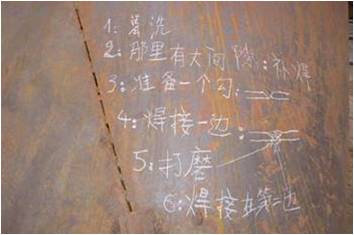 1: 幕洗
2: 那里有大间隙: 补焊
3: 准备一个勾:
4: 焊接一边:
5: 打磨
6: 焊接在第二边